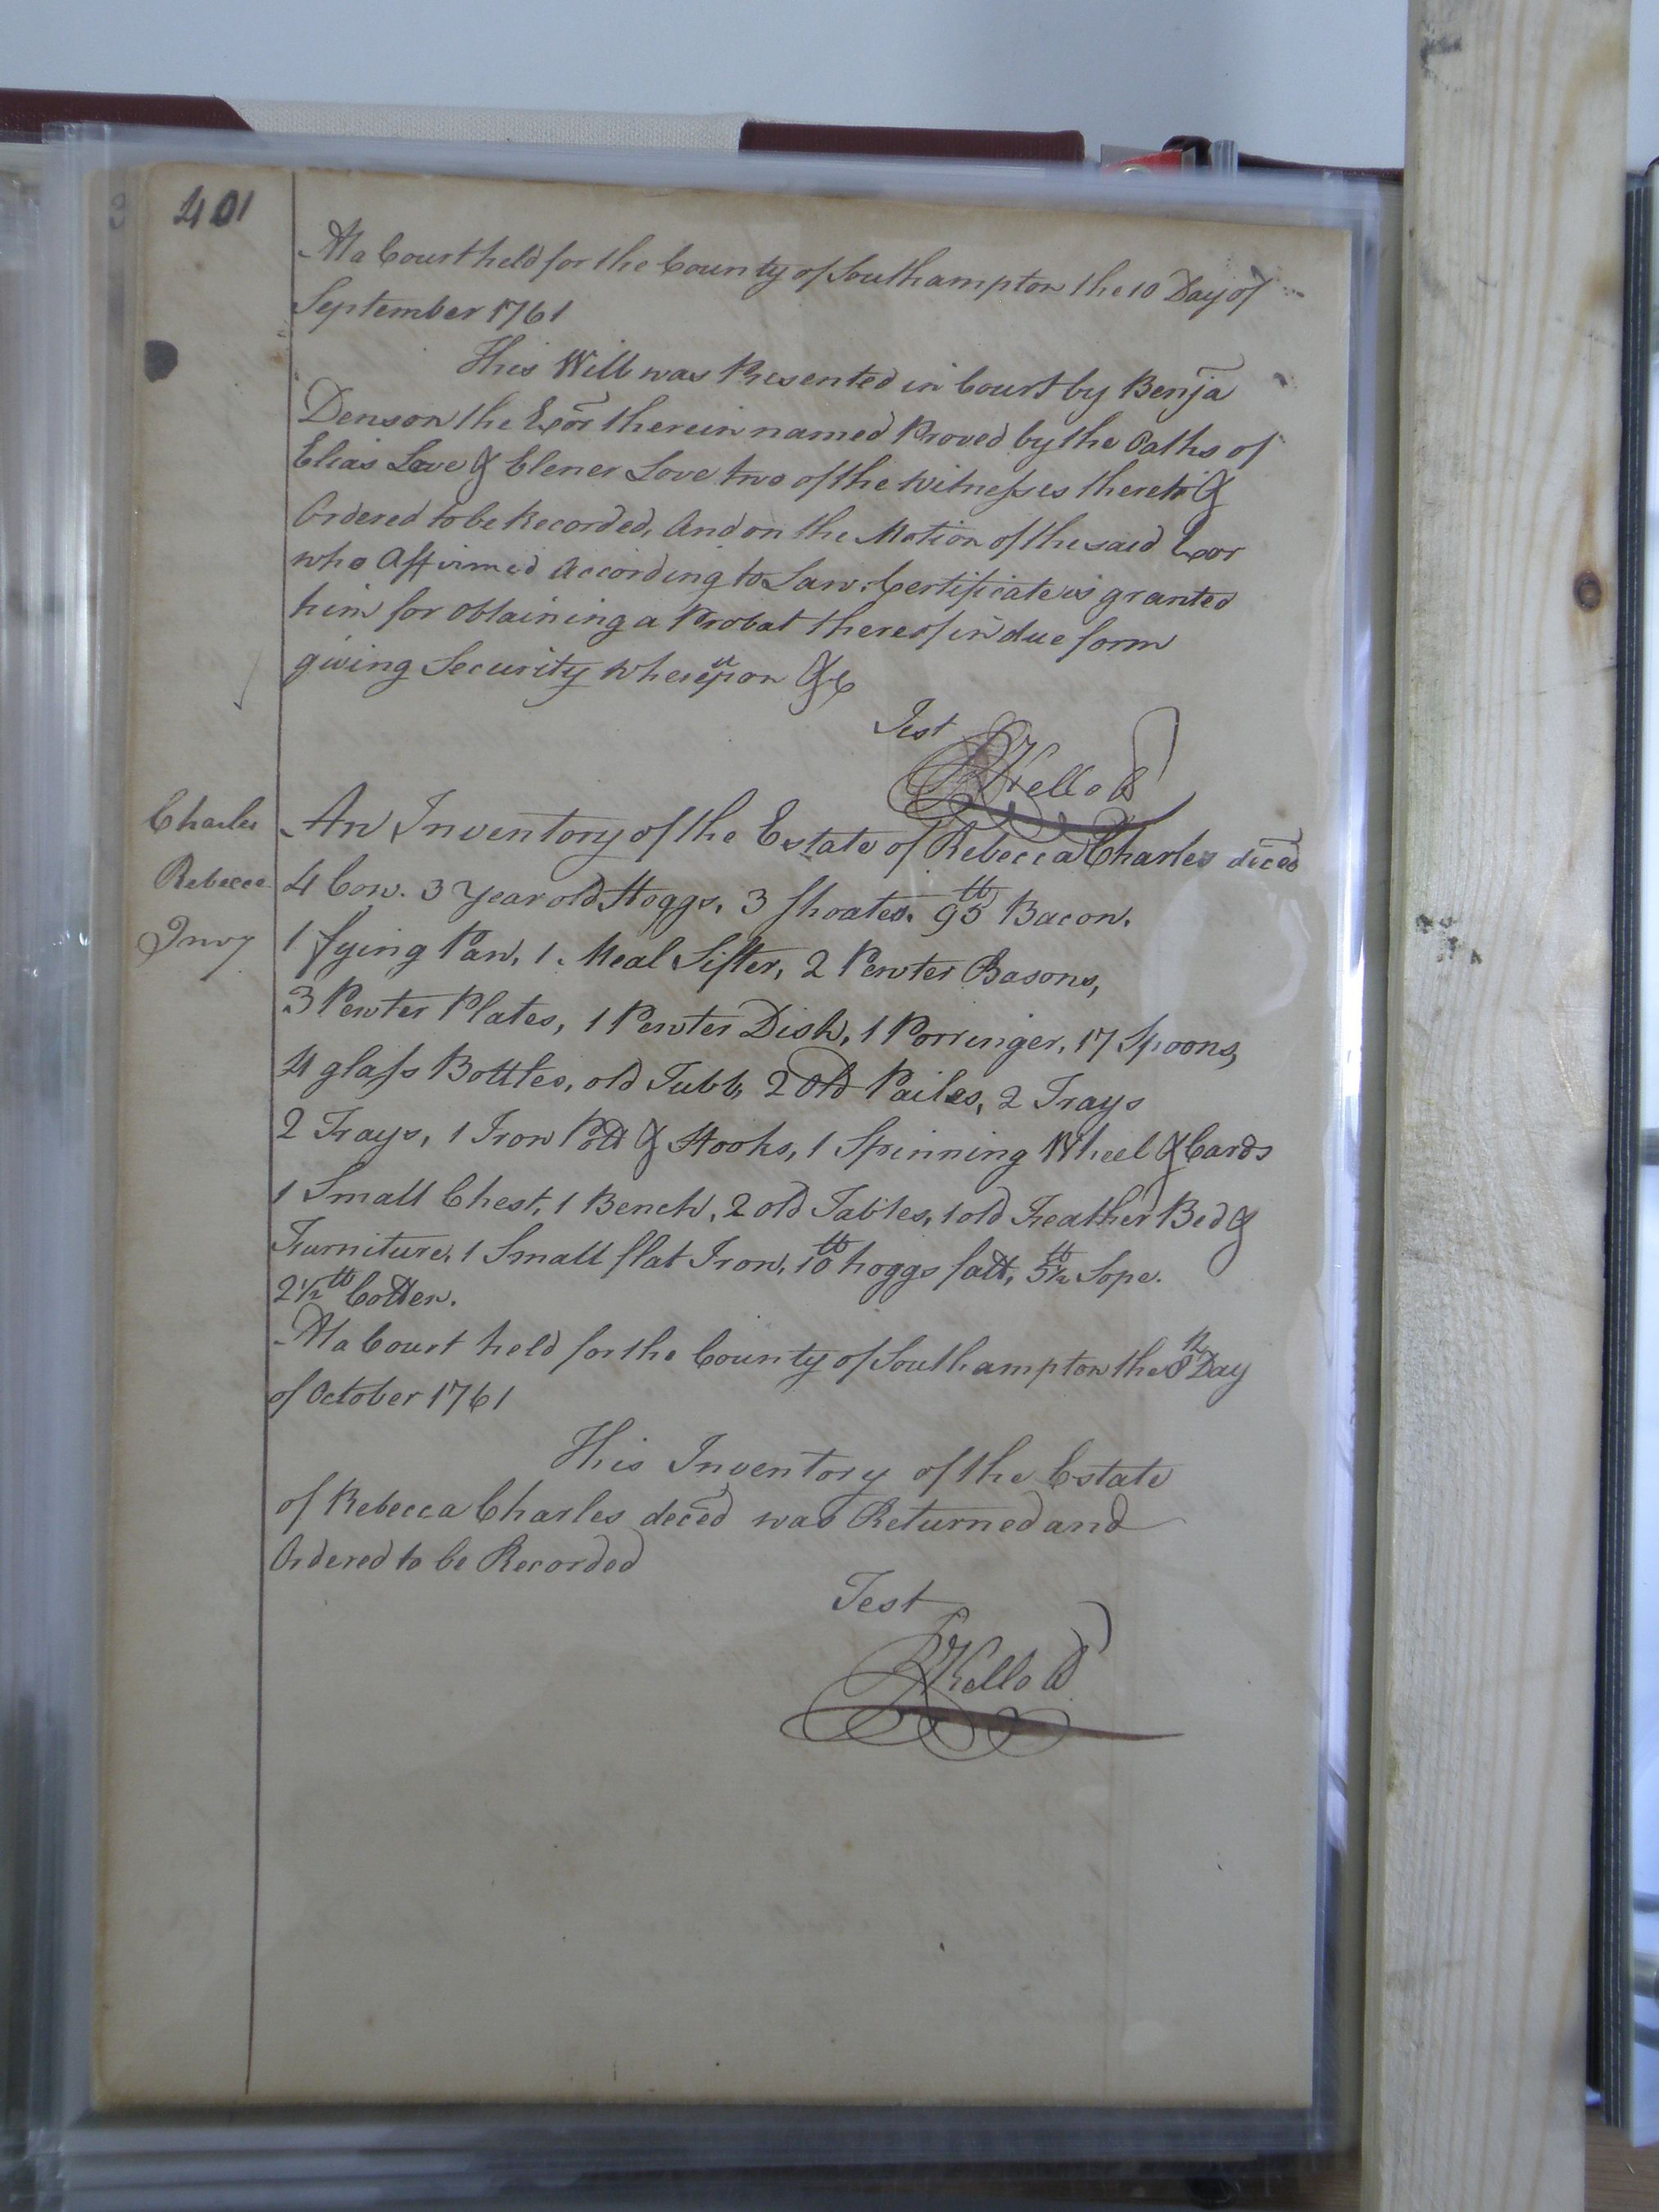 401
At a Court held for the County of Southampton the 10 Day of
September 1761
This Will was Presented in Court by Benja
Denson the Exor therein named Proved by the Oaths of
Elias Love & Elener Love two of the Witnesses thereto &
Ordered to be Recorded, And on the Motion of the said Exor
who Affirmed According to Law. Certificate is granted
him for obtaining a Probat thereof in due form
giving Security whereupon &c
Test
RKello Cl
Charles
Rebecca
Invy
An Inventory of the Estate of Rebecca Charles deced
4 Cow. 3 Year old Hoggs, 3 Shoates. 95 lb Bacon.
1 fying Pan, 1. Meal Sifter, 2 Pewter Basons,
3 Pewter Plates, 1 Pewter Dish, 1 Porringer, 17 Spoons,
4 glass Bottles, old Tubb, 2 Old Pailes, 2 Trays
2 Trays, 1 Iron Pott & Hooks, 1 Spinning Wheel & Cards
1 Small Chest, 1 Bench, 2 old Tables, 1 old Feather Bed &
Furniture, 1 Small flat Iron, 10 lb hoggs fatt, 5½ lb Sope.
2½ lb Cotten.
At a Court held for the County of Southampton the 8th Day
of October 1761
This Inventory of the Estate
of Rebecca Charles deced was Returned and
Ordered to be Recorded
Test
RKello Cl